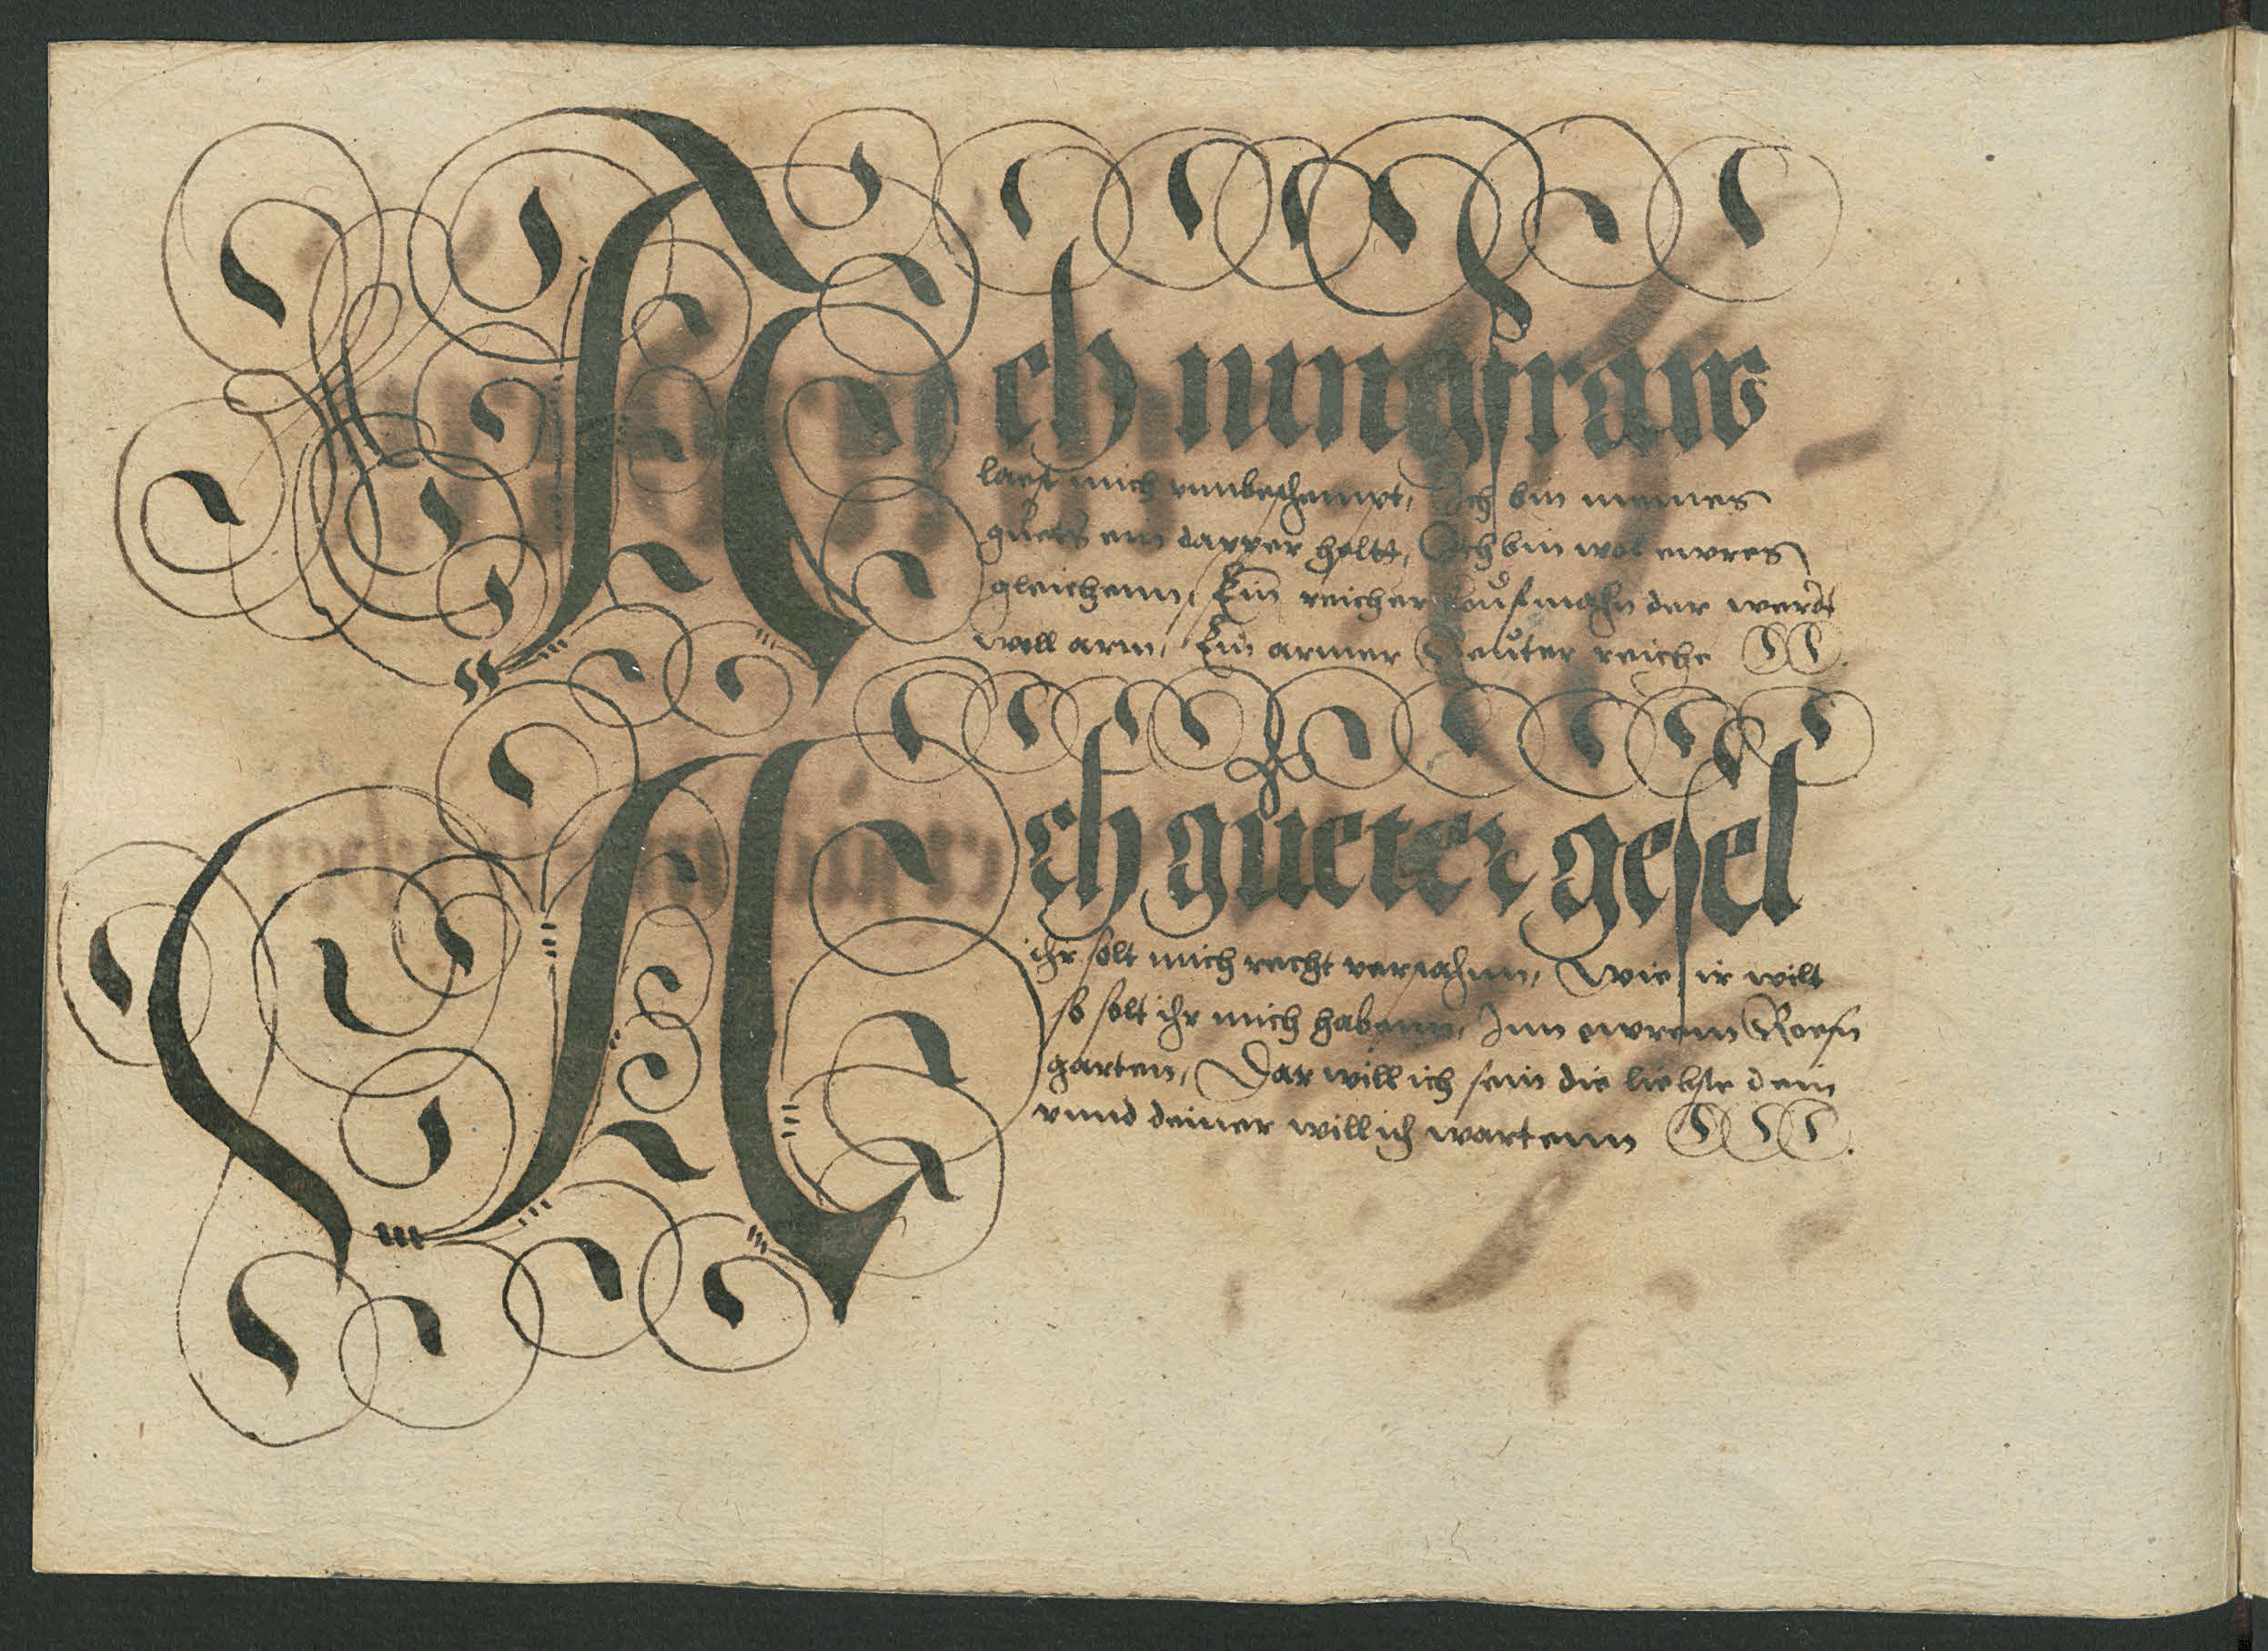 Ach iungfraw
laest mich vnnbeschempt, Ich bin meines
guets ein dapper heltt, Ich bin wol ewres
gleichenn, Ein reicher koufmahn der werdt
woll arm, Ein armer Reuter reiche
Ach gueter gesel
ihr solt mich recht versahnn, Wie ir wilt
so solt ihr mich habenn, Inn ewrem Rosen
garten, Dar will ich sein die liebste dein
vnnd deiner will ich wartenn